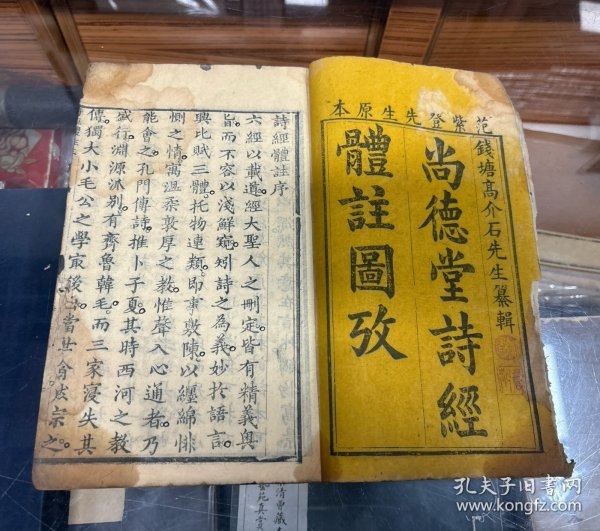 范紫登先生原本
錢塘高介石先生纂輯
尚德堂詩經
體註圖攷
詩經體註序
六經以載道經大聖人之刪定皆有精義奧
旨而不容以淺鮮窺矧詩之為義妙於語言
興比賦三體托物連類即事敷陳以纏綿悱
惻之情寓溫柔敦厚之教惟聲入心通者乃
能會之孔門傳詩推卜子夏其時西河之教
盛行淵源派別有齊魯韓毛而三家寖失其
傳獨大小毛公之學家後當世翕然宗之
清曹藏
孔夫子旧书网